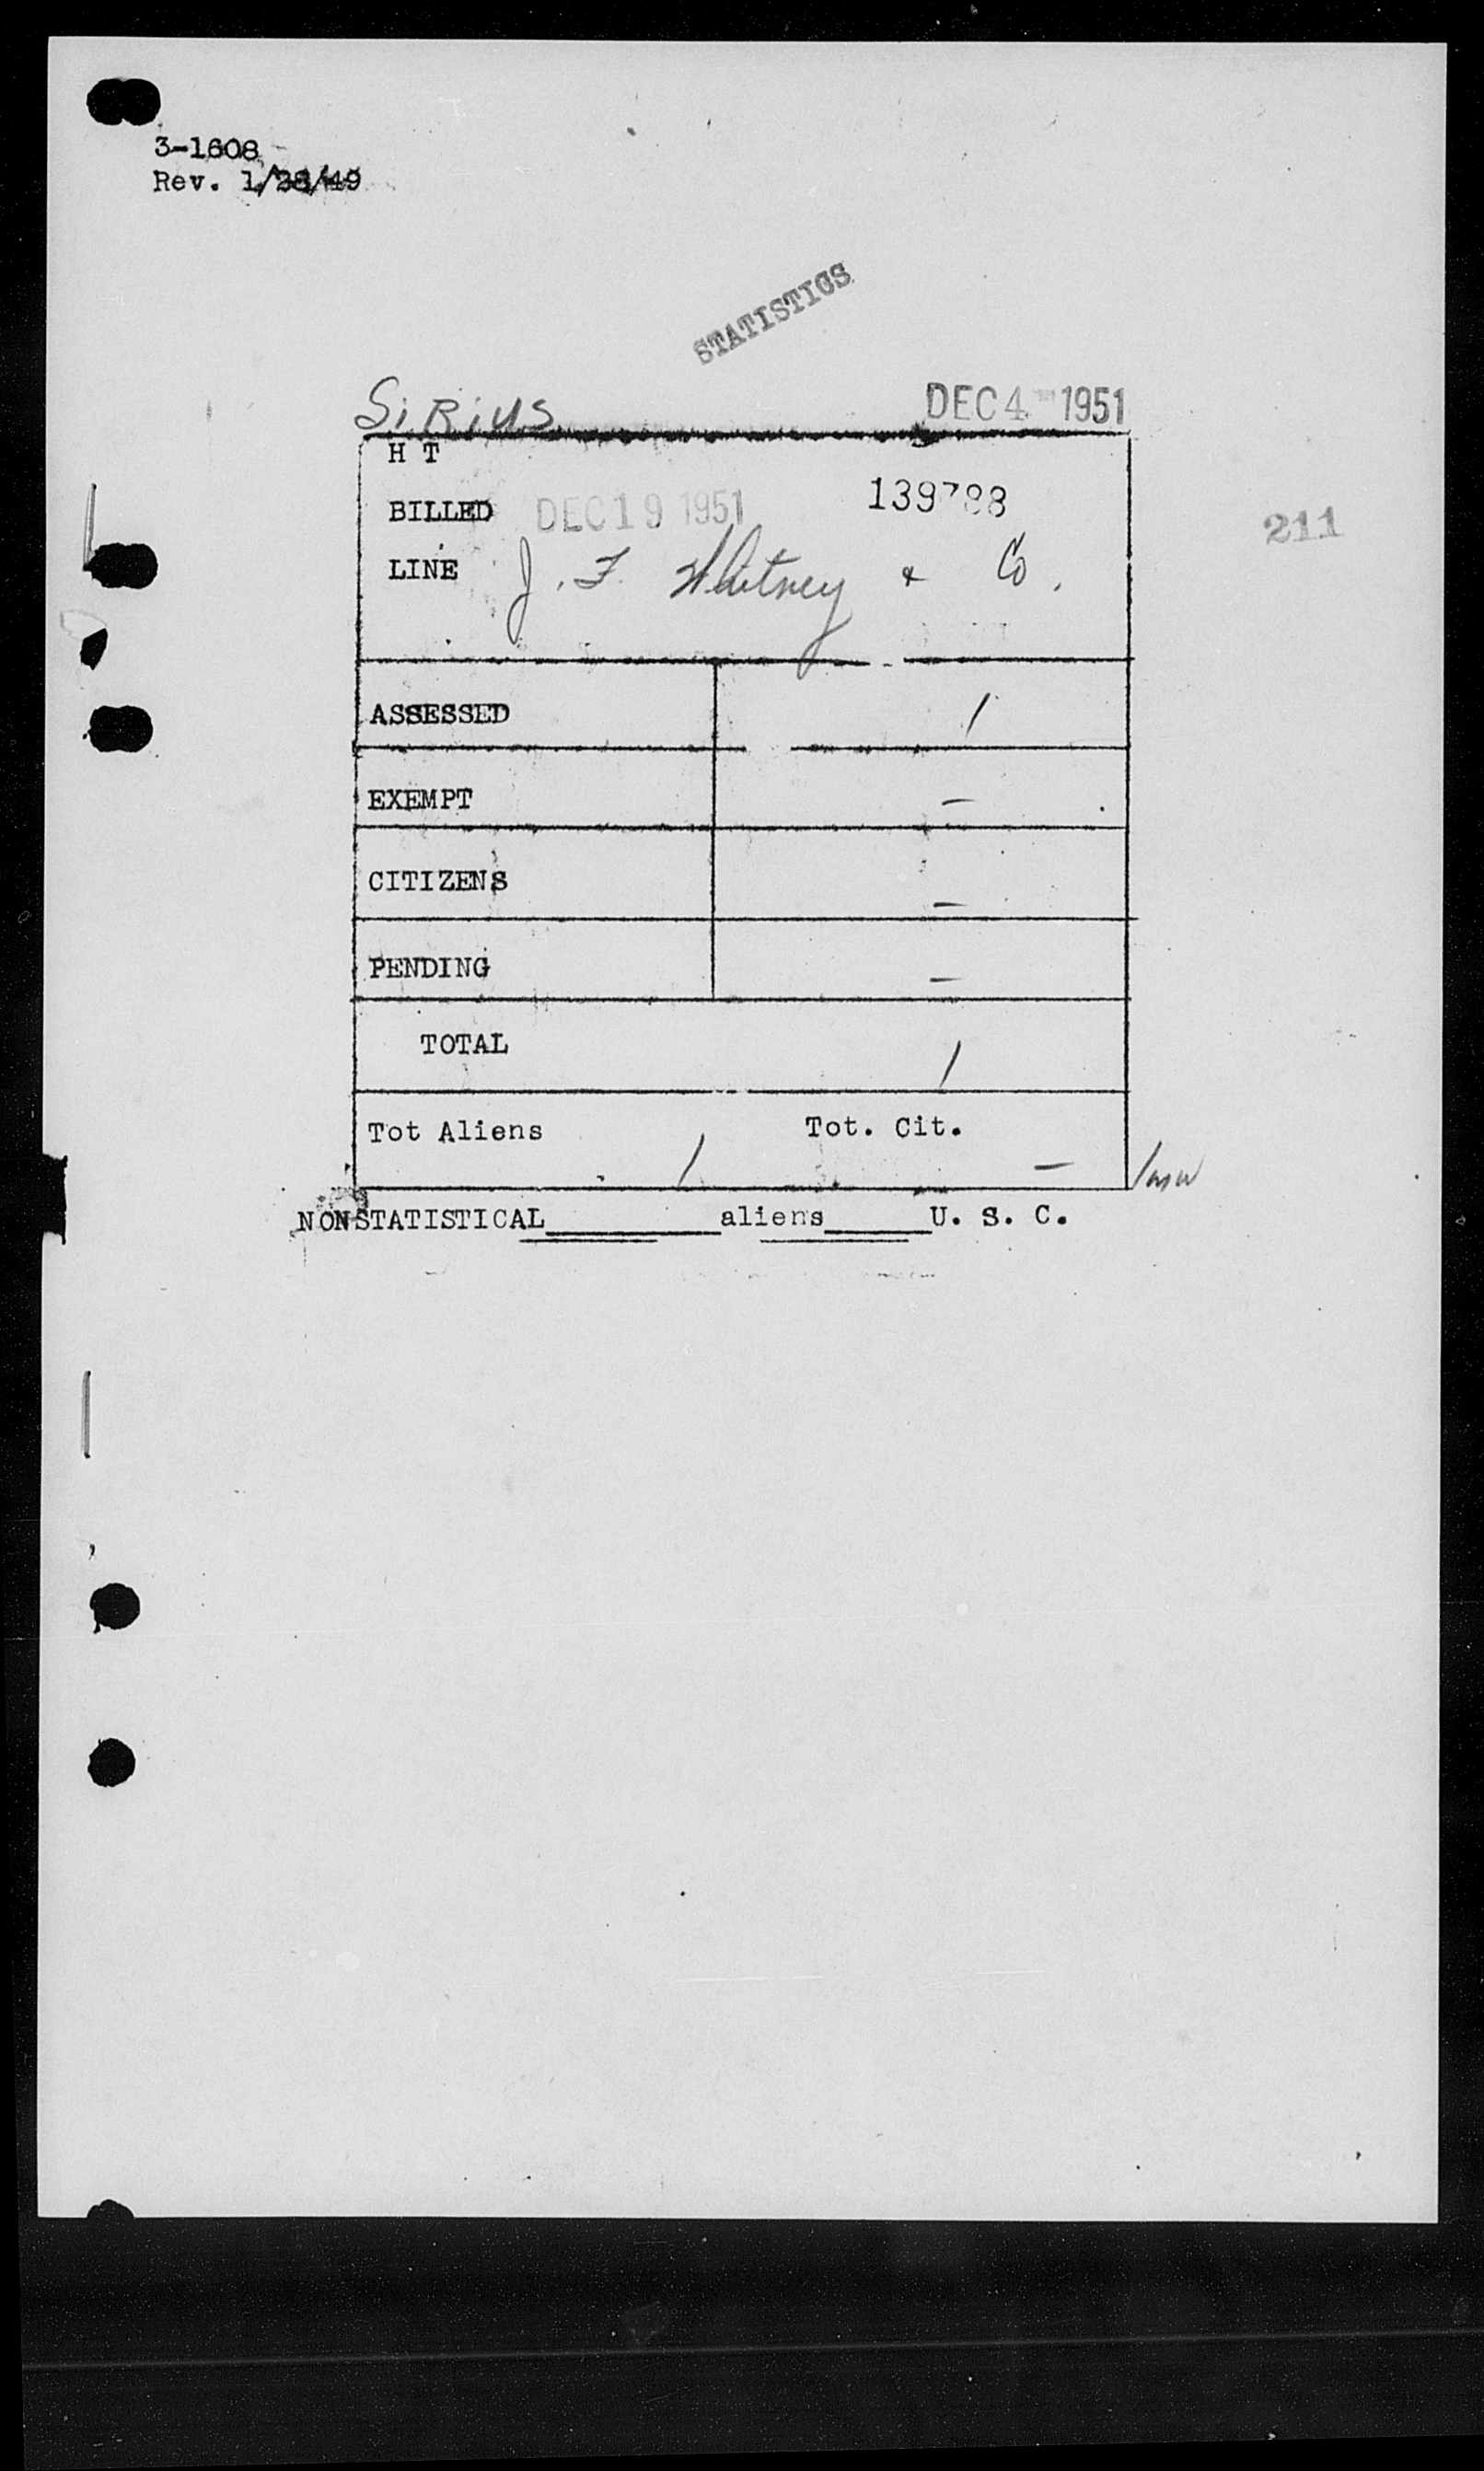 3-1608
Rev. 1/28/49
STATISTICS
SiRiUS DEC 4 1951
H T
BILLED DEC 19 1951 139788
LINE J. F. Whitney & Co.
211
ASSESSED 1
EXEMPT -
CITIZENS -
PENDING -
TOTAL 1
Tot Aliens 1 Tot. Cit. -
NONSTATISTICAL______aliens______U. S. C.